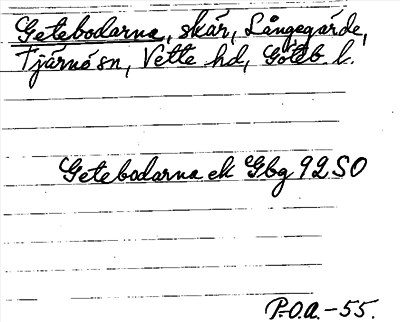 Getebodarna, skär, Långegärde,
Tjärnö sn, Vette hd, Göteb. l.
Getebodarna ek Gbg 92 SO
P.O.A. - 55.